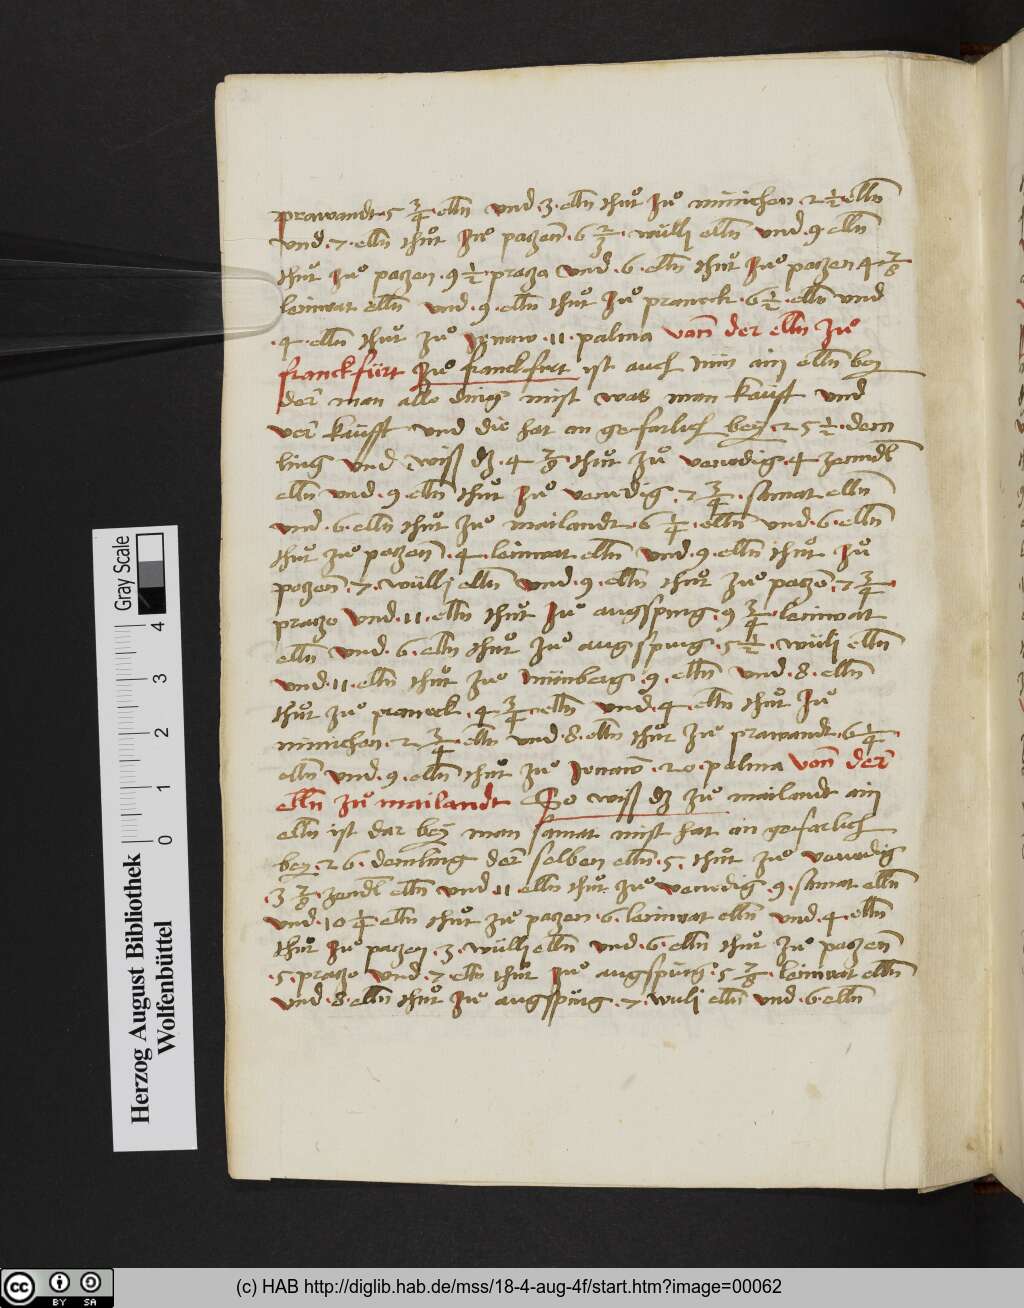 prawandt 5 3/4 elln und 3 elln thut zu münichen 2 1/2 elln
und 7 elln thut zu pozen 6 2/3 wülli elln und 9 elln
thut zu pozen 9 1/2 prazo und 6 elln thut zu pozen 4
leinwat elln und 9 elln thut zu praneck 6 1/2 elln und
4 elln thut zu 11 palma vonn der elln zu
franckfürt zu franckfurt ist auch nür ain elln bey
der man alle ding mist was man kaufft und
ver kaufft und die hat an geferlich bey 25 1/2 dem
ling und wiß dz 4 thut zu venedig 4 zenndl
elln und 9 elln thut zu venedig 7 3/4 samat elln
und 6 elln thut zu mailandt 6 1/4 elln und 6 elln
thut zu pozen 4 leinwat elln und 9 elln thut zu
pozen 7 wülli elln und 9 elln thut zu pozen 7 3/4
prazo und 11 elln thut zu augspurg 9 3/4 leinwat
elln und 6 elln thut zu augspurg 5 1/2 wüli elln
und 11 elln thut zu nürnberg 9 elln und 8 elln
thut zu praneck 4 3/4 elln und 4 elln thut zu
münichen 2 3/4 elln und 8 elln thut zu prawandt 6 1/4
elln und 9 elln thut zu 20 palma vonn der
elln zu mailandt So wiß dz zu mailandt ain
elln ist dar bey man samat mist hat an geferlich
bey 26 demling der selben elln 5 thut zu venedig
3 zendl elln und 11 elln thut zu venedig 9 samat elln
und 10 1/4 elln thut zu pozen 6 leinwat elln und 4 elln
thut zu pozen 3 wülli elln und 6 elln thut zu pozen
5 prazo und 7 elln thut zu augspurg 5 leinwat elln
und 8 elln thut zu augspürg 7 wuli elln und 6 elln
Gray Scale
4
3
2
1
0
Herzog August Bibliothek
Wolfenbüttel
cc BY SA
(c) HAB http://diglib.hab.de/mss/18-4-aug-4f/start.htm?image=00062